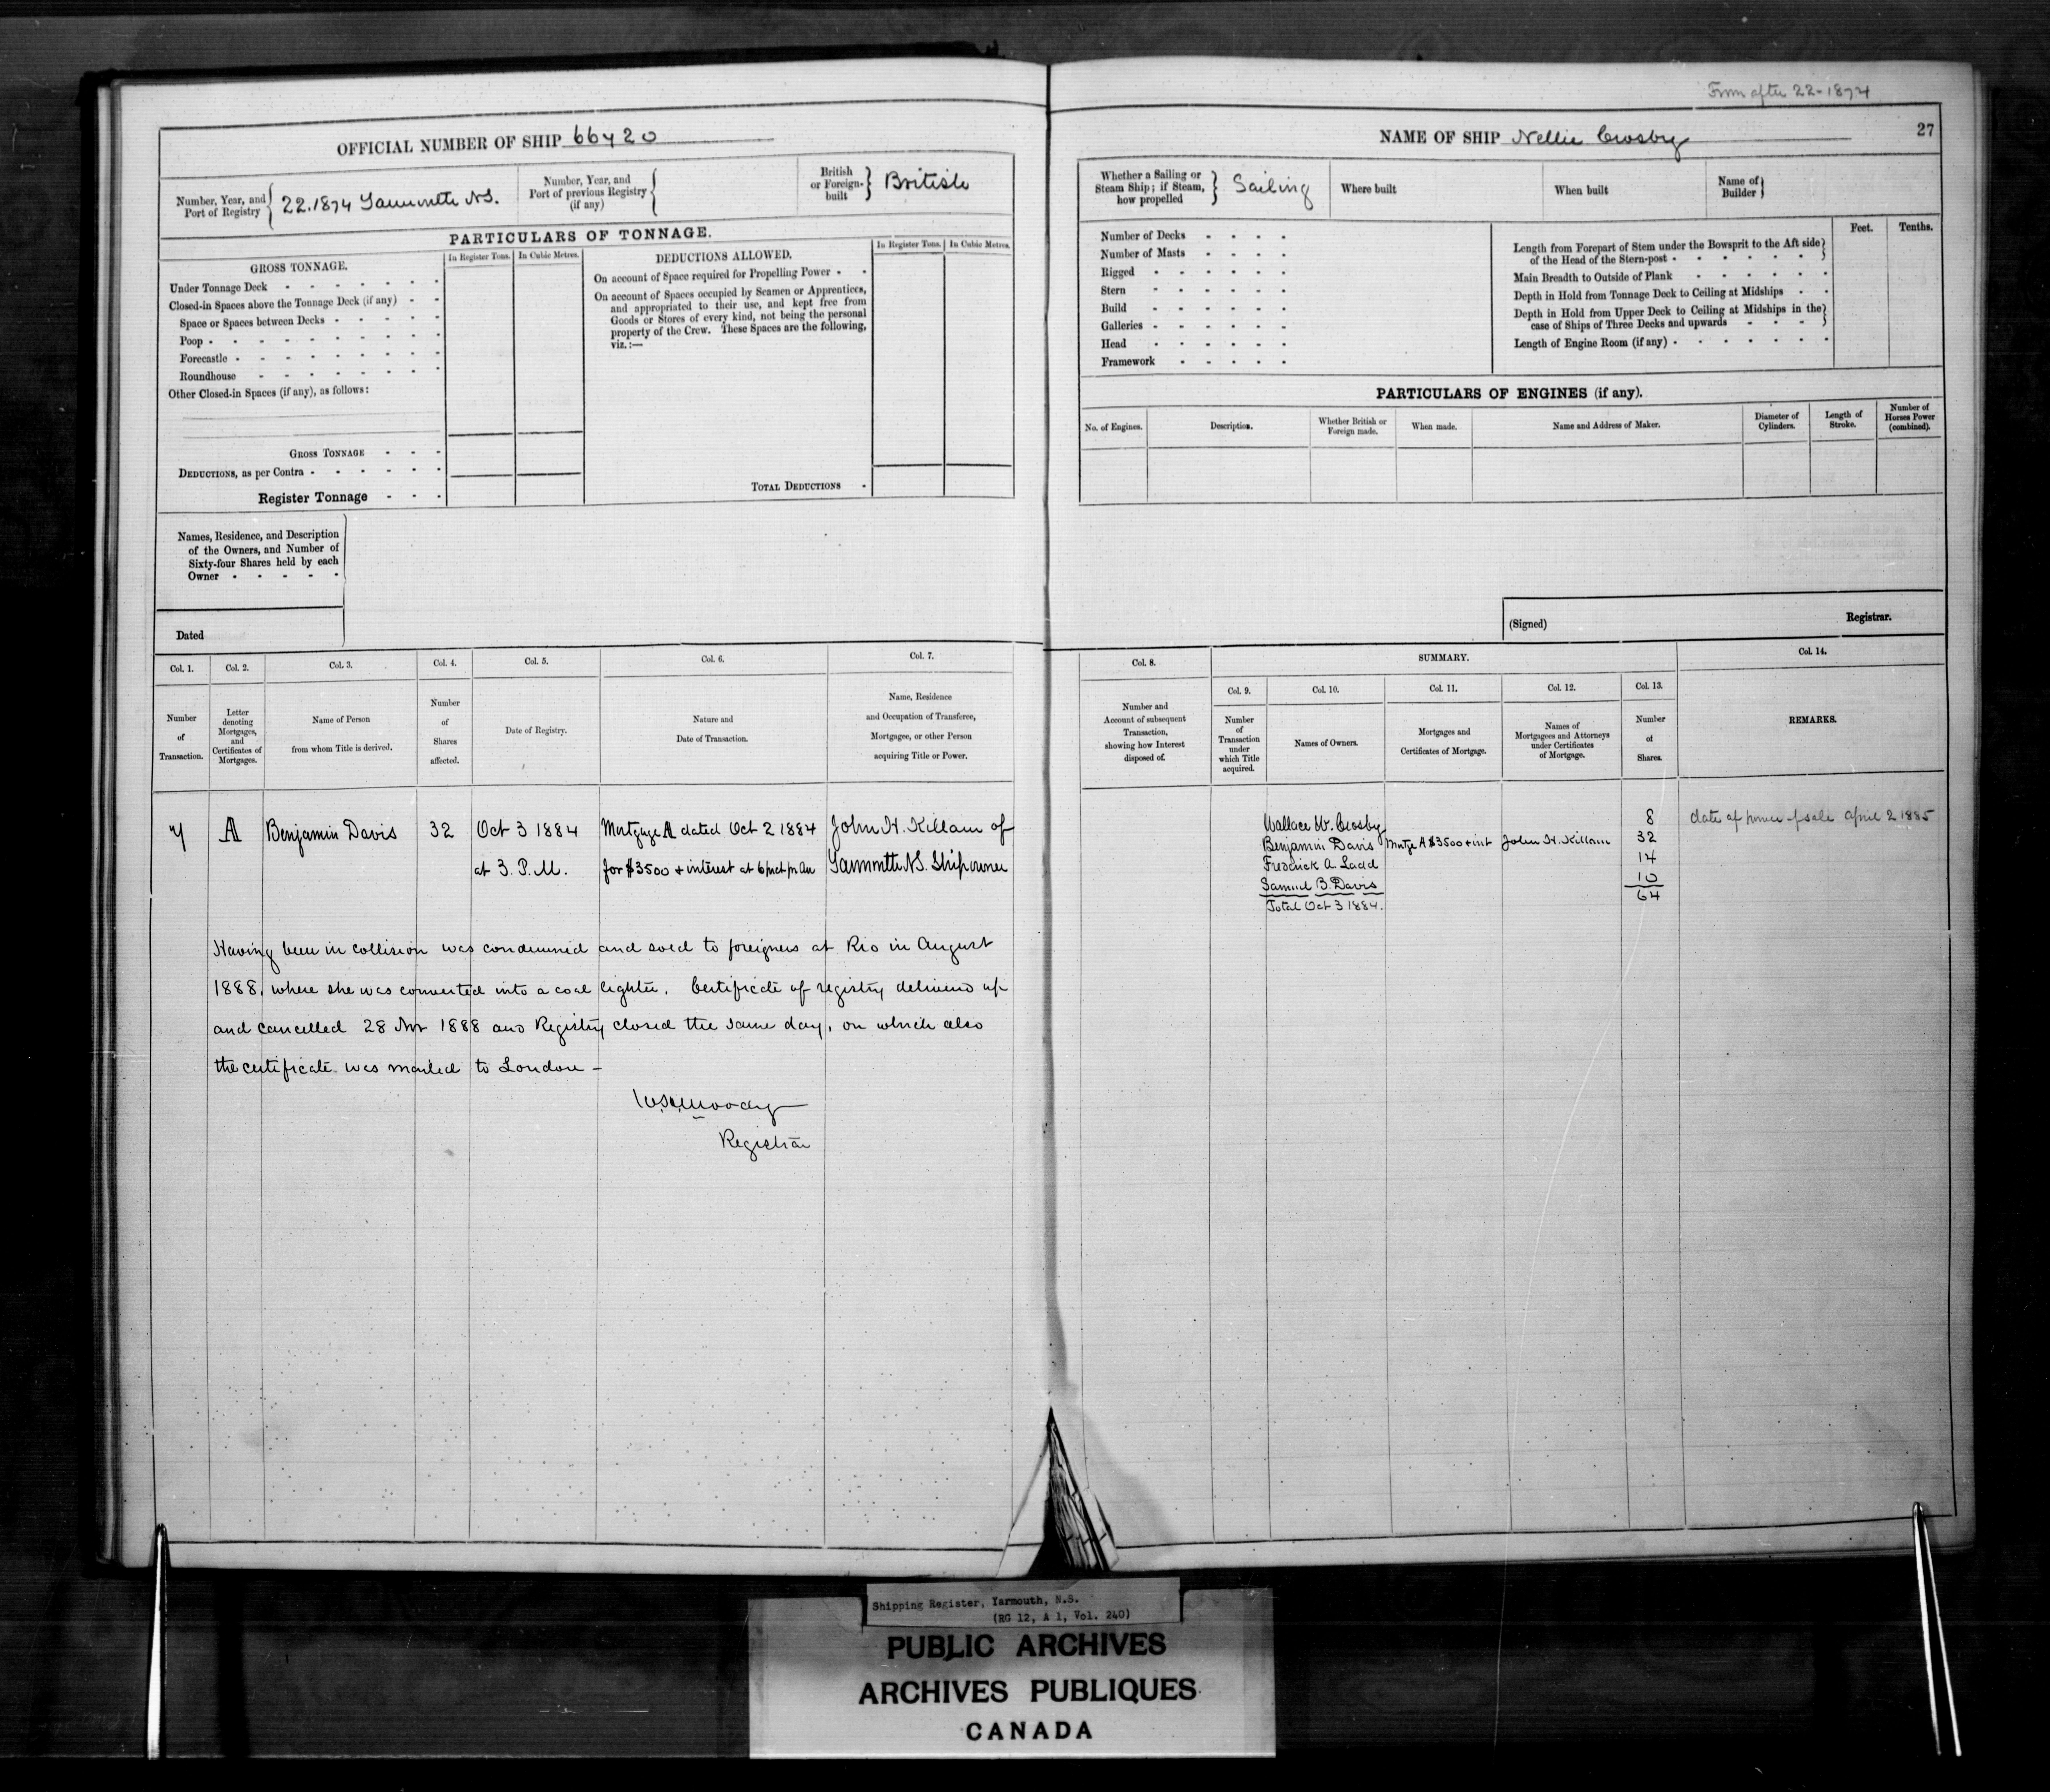 From after 22-1874
OFFICIAL NUMBER OF SHIP 66720
Number, Year, and Port of Registry { 22.1874 Yarmouth N.S.
Number, Year, and Port of previous Registry (if any) {
British or Foreign-built } British
PARTICULARS OF TONNAGE.
GROSS TONNAGE.
In Register Tons. In Cubic Metres.
Under Tonnage Deck
Closed-in Spaces above the Tonnage Deck (if any)
Space or Spaces between Decks
Poop
Forecastle
Roundhouse
Other Closed-in Spaces (if any), as follows:
GROSS TONNAGE
DEDUCTIONS, as per Contra
Register Tonnage
DEDUCTIONS ALLOWED.
In Register Tons. In Cubic Metres.
On account of Space required for Propelling Power
On account of Spaces occupied by Seamen or Apprentices,
and appropriated to their use, and kept free from
Goods or Stores of every kind, not being the personal
property of the Crew. These Spaces are the following,
viz.:—
TOTAL DEDUCTIONS
Names, Residence, and Description
of the Owners, and Number of
Sixty-four Shares held by each
Owner
Dated
Col. 1. Col. 2. Col. 3. Col. 4. Col. 5. Col. 6. Col. 7.
Number of Transaction.
Letter denoting Mortgages, and Certificates of Mortgages.
Name of Person from whom Title is derived.
Number of Shares affected.
Date of Registry.
Nature and Date of Transaction.
Name, Residence and Occupation of Transferee, Mortgagee, or other Person acquiring Title or Power.
7 A Benjamin Davis 32 Oct 3 1884 Mortgage A dated Oct 2 1884 John H. Killam of
at 3. P.M. for $3500 + interest at 6 pr ct pr An Yarmouth N.S. Shipowner
Having been in collision was condemned and sold to foreigners at Rio in August
1888, where she was converted into a coal lighter. Certificate of registry delivered up
and cancelled 28 Nov 1888 and Registry closed the same day, on which also
the certificate was mailed to London –
Moody
Registrar
NAME OF SHIP Nellie Crosby
27
Whether a Sailing or Steam Ship; if Steam, how propelled } Sailing
Where built
When built
Name of Builder }
Number of Decks
Number of Masts
Rigged
Stern
Build
Galleries
Head
Framework
Feet. Tenths.
Length from Forepart of Stem under the Bowsprit to the Aft side
of the Head of the Stern-post
Main Breadth to Outside of Plank
Depth in Hold from Tonnage Deck to Ceiling at Midships
Depth in Hold from Upper Deck to Ceiling at Midships in the
case of Ships of Three Decks and upwards
Length of Engine Room (if any)
PARTICULARS OF ENGINES (if any).
No. of Engines. Description. Whether British or Foreign made. When made. Name and Address of Maker. Diameter of Cylinders. Length of Stroke. Number of Horses Power (combined).
(Signed) Registrar.
Col. 8. SUMMARY. Col. 14.
Col. 9. Col. 10. Col. 11. Col. 12. Col. 13.
Number and Account of subsequent Transaction, showing how Interest disposed of.
Number of Transaction under which Title acquired.
Names of Owners.
Mortgages and Certificates of Mortgage.
Names of Mortgagees and Attorneys under Certificates of Mortgage.
Number of Shares.
REMARKS.
Wallace W. Crosby 8 date of power of sale April 2 1885
Benjamin Davis Mortge A $3500 + int John H. Killam 32
Frederick A. Ladd 14
Samuel B. Davis 10
Total Oct 3 1884. 64
Shipping Register, Yarmouth, N.S.
(RG 12, A 1, Vol. 240)
PUBLIC ARCHIVES
ARCHIVES PUBLIQUES
CANADA